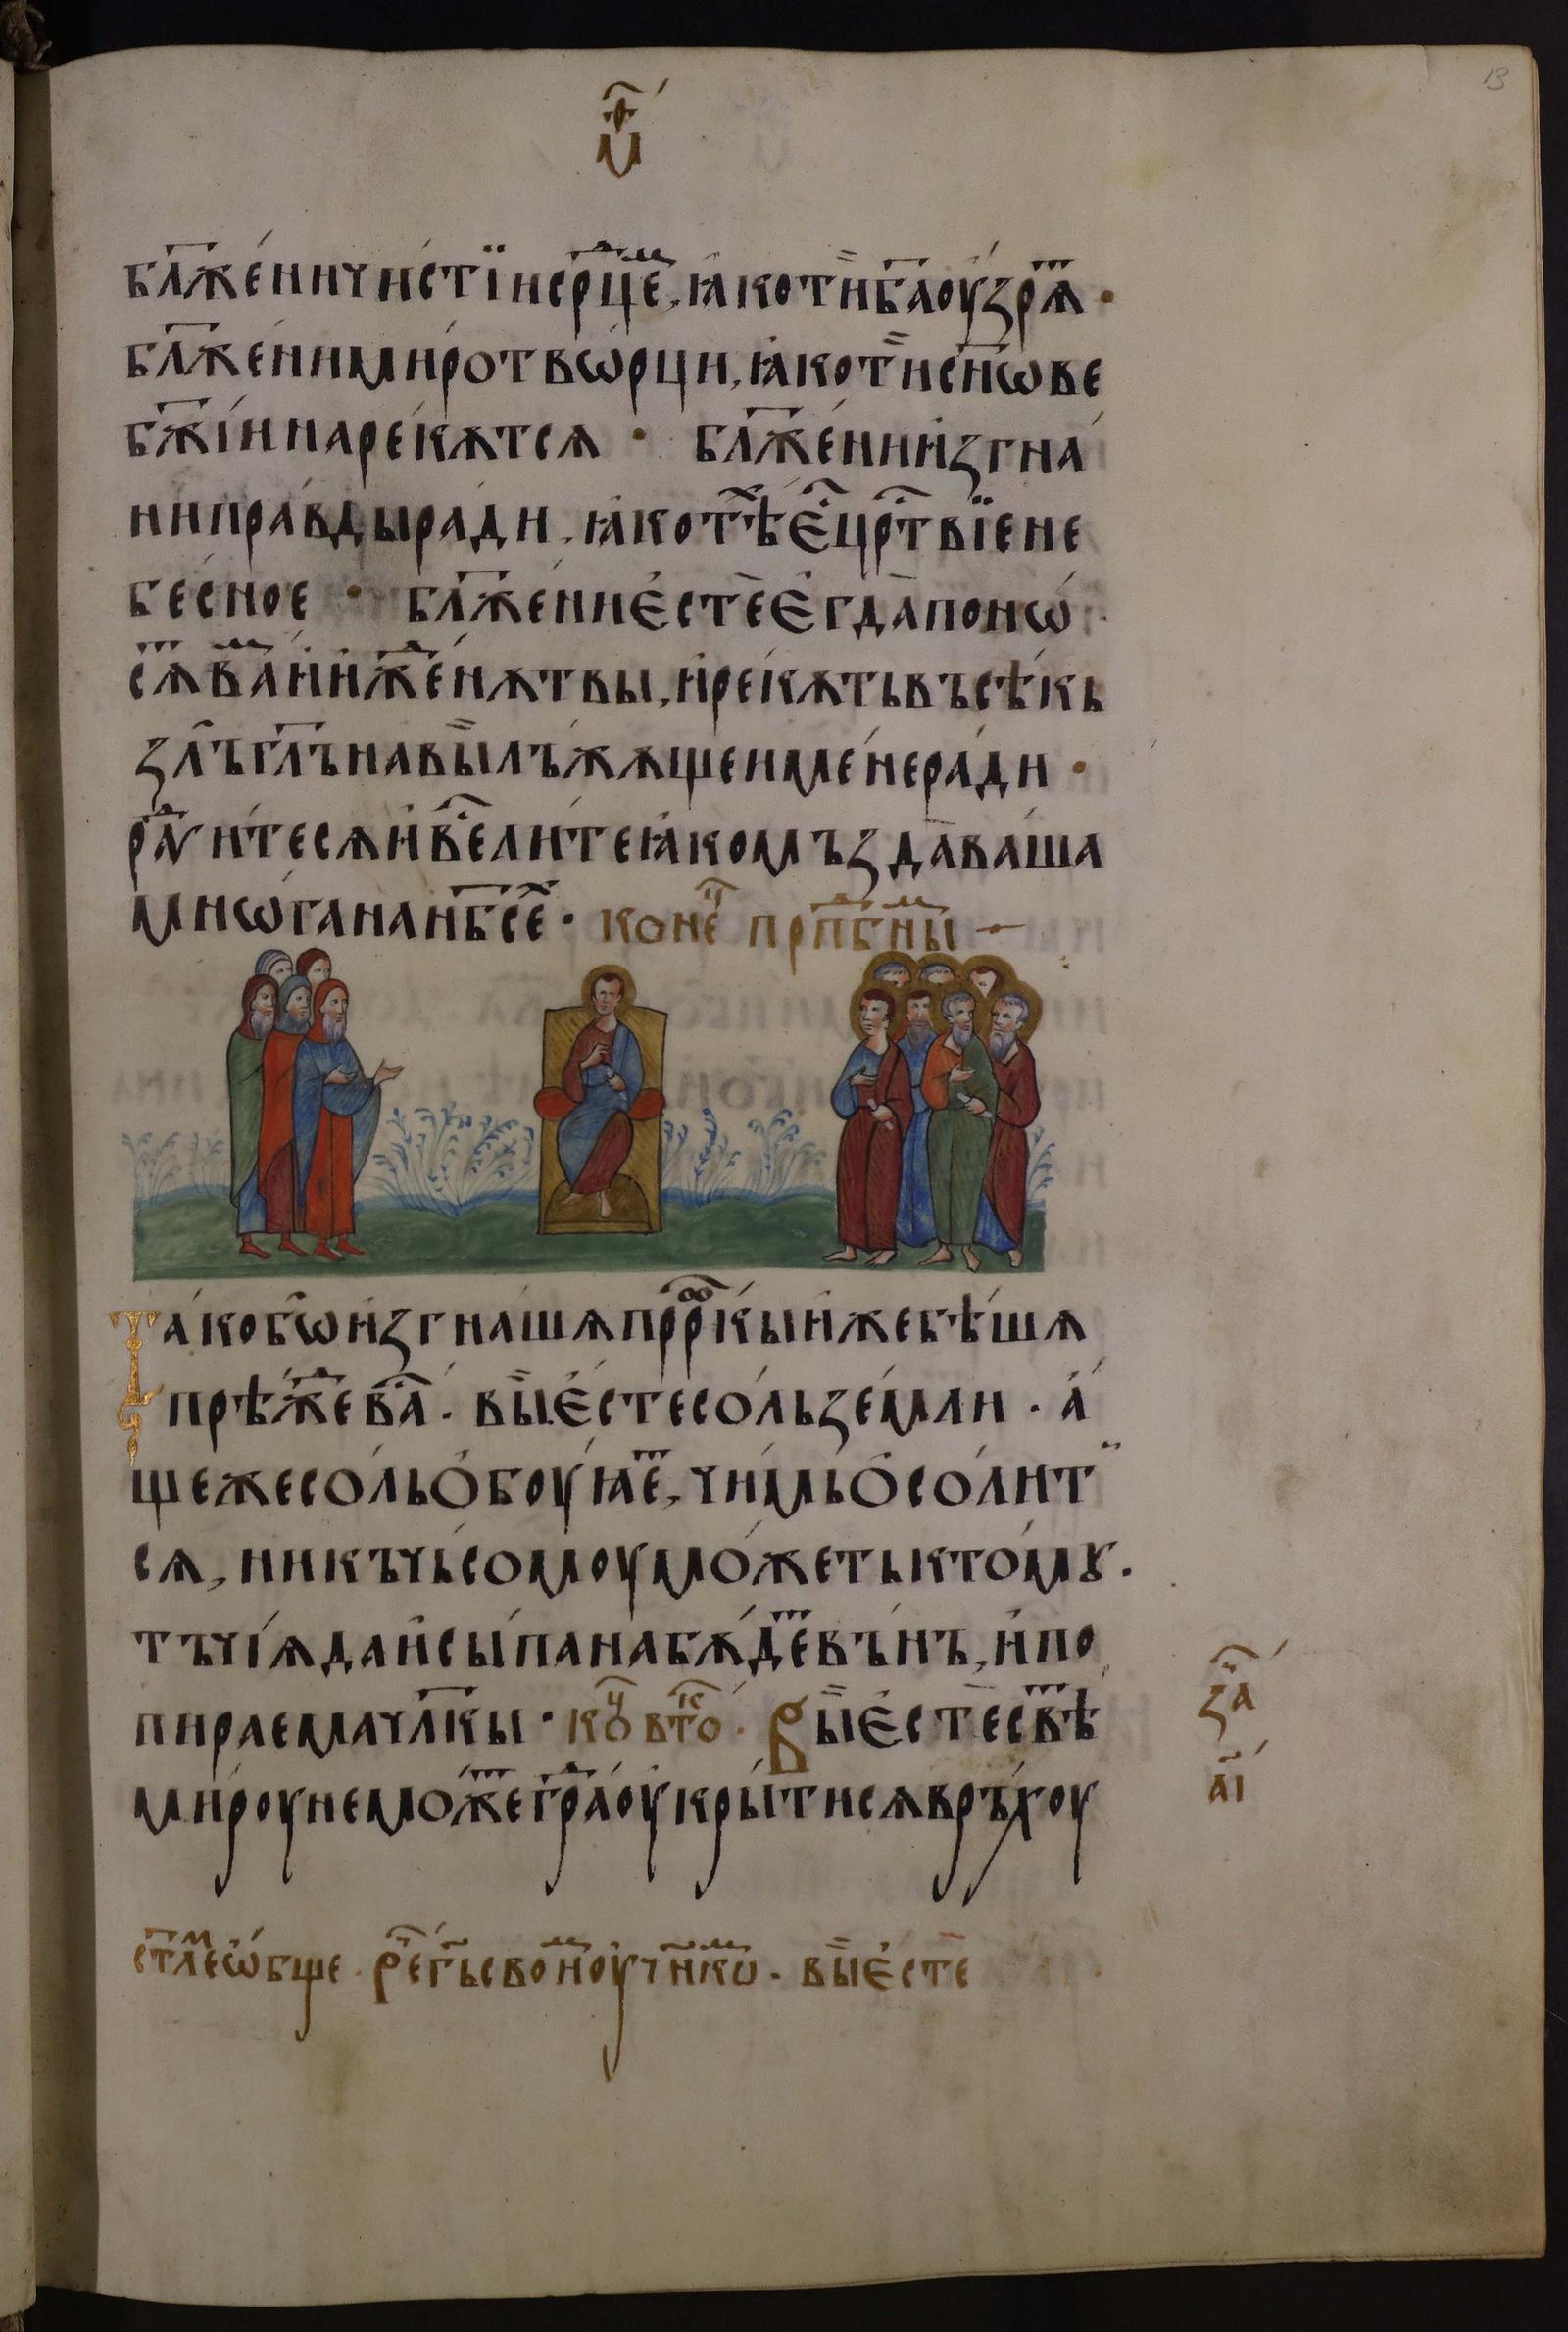 13
бл҃же́ни чи́стїи срⷣцеⷨ, ꙗ҆ко ті̏и б҃а оу҆́зрѧⷮ ·
бл҃же́ни миротвѡ́рци, ꙗ҆ко ті̏и сн҃ѡве
бж҃їи нарекѫ́тсѧ · бл҃же́ни и҆згна́
ни пра́вды ра́ди, ꙗ҆ко тѣⷯ є҆ⷭ҇ црⷭ҇твїе не
бе́сное · бл҃же́ни є҆сте̏ є҆гда̀ поно́ѡ
сѧⷮ ваⷨ и҆ и҆жⷣенѫ́т вы, и҆ рекѫ́ть въсѣ́кь
зл̑ъ гл҃ъ на вы̏ лъ́жѫще мене́ ра́ди ·
раⷣꙋи́те сѧ и҆ веⷭ҇ли́те ꙗ҆ко мъзда̀ ва́ша
мнѡ́га на нб҃сеⷯ · коне́ⷰ҇ прпⷣбныⷨ
та́ко бѡ̑ и҆згна́шѧ прⷪ҇ро́кы и҆же бѣ́шѧ
прѣ́жⷣе ваⷭ҇ . вы̏ є҆́сте со́ль земли . а҆́
ще же со́ль ѻ҆боуꙗ́еⷮ, чи́мь ѻ҆со́лит
сѧ, ни къ чьсомоу мо́жеть ктомꙋ̀ .
тъчі́ѧ да и҆сы́пана бѫ́деⷮ вънъ, и҆ по
пираема чл҃кы · коⷰ҇ вто́ⷦ · Вы̏ є҆сте̏ свѣⷮ
ми́роу не мо́жеⷮ граⷣ оу҆кры́ти сѧ връ́хоу
за҇
а҃і
ст҃леⷨ ѡ҆́бще . реⷱ҇ гь̑ своиⷨ оу҆чн҃кѡⷨ . вы̏ є҆сте̏